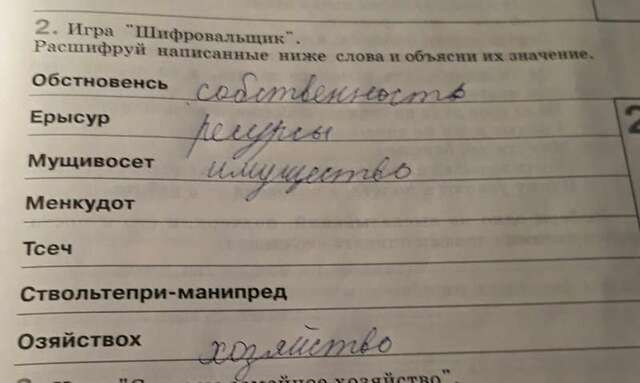 2. Игра "Шифровальщик".
Расшифруй написанные ниже слова и объясни их значение.
Обстновенсь собственность
Ерысур ресурсы
Мущивосет имущество
Менкудот
Тсеч
Ствольтепри-манипред
Озяйствох хозяйство